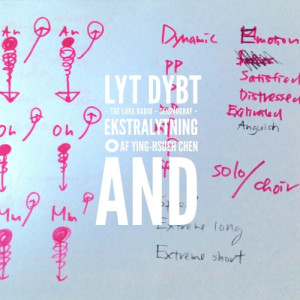 Dynamic Emotion
pp
Satisfied
Distressed
Anguish
LYT DYBT
- THE LAKE RADIO - SEISMOGRAF -
EKSTRALYTNING
AF YING-HSUEH CHEN
AND
Oh Oh
f solo/
choir
Mm Mm
Extreme long
Extreme short